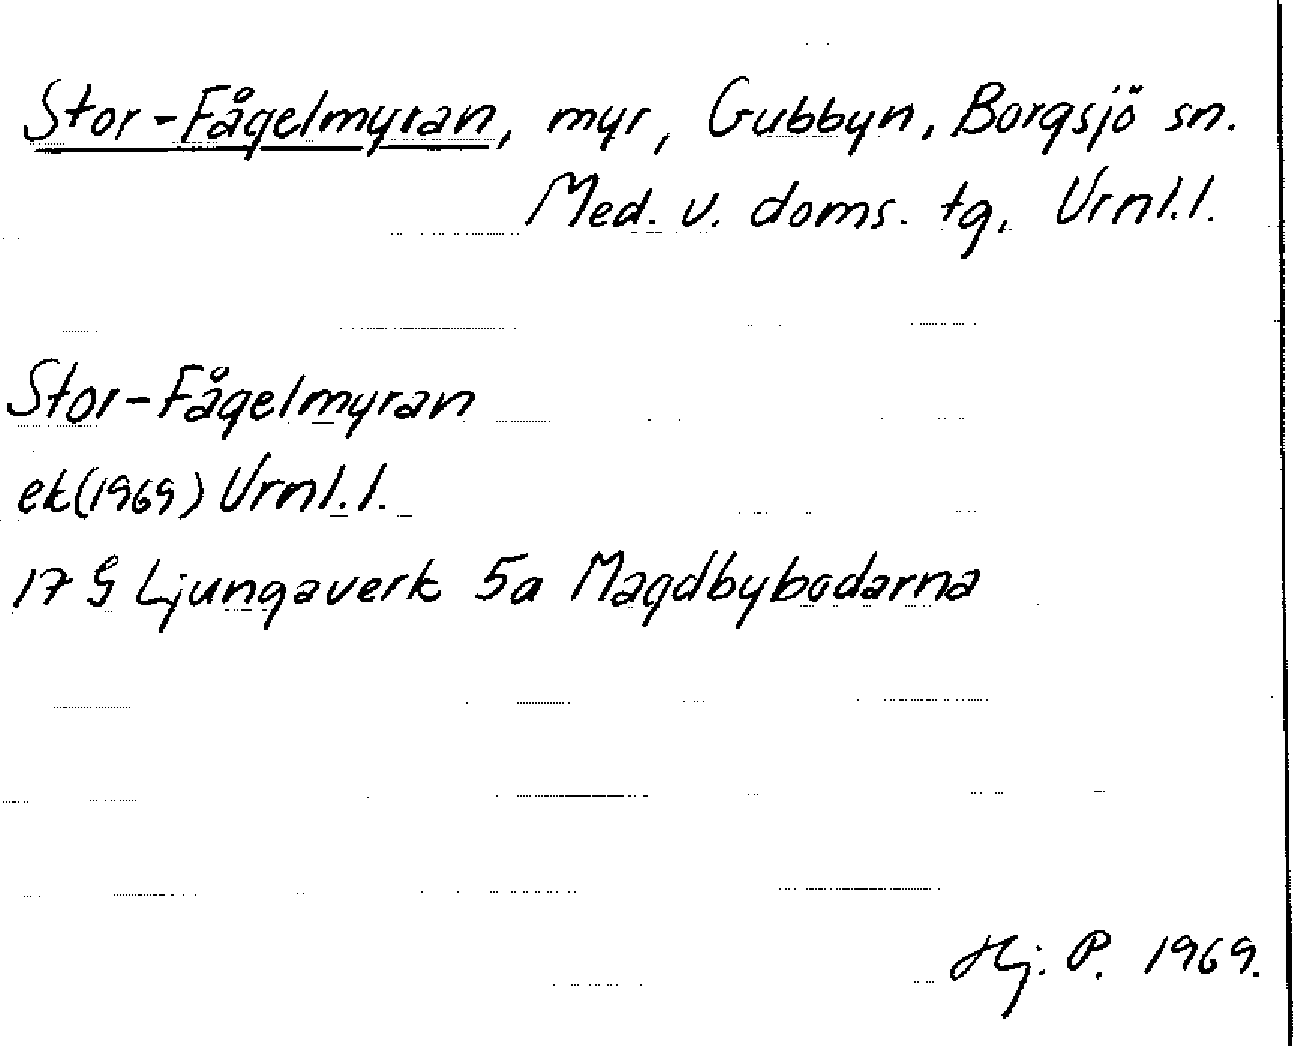 Stor-Fågelmyran, myr, Gubbyn, Borgsjö sn.
Med. v. doms. tg. Vrnl.l.
Stor-Fågelmyran
ek(1969) Vrnl.l.
17 G Ljungaverk 5a Magdbybodarna
Hj. P. 1969.